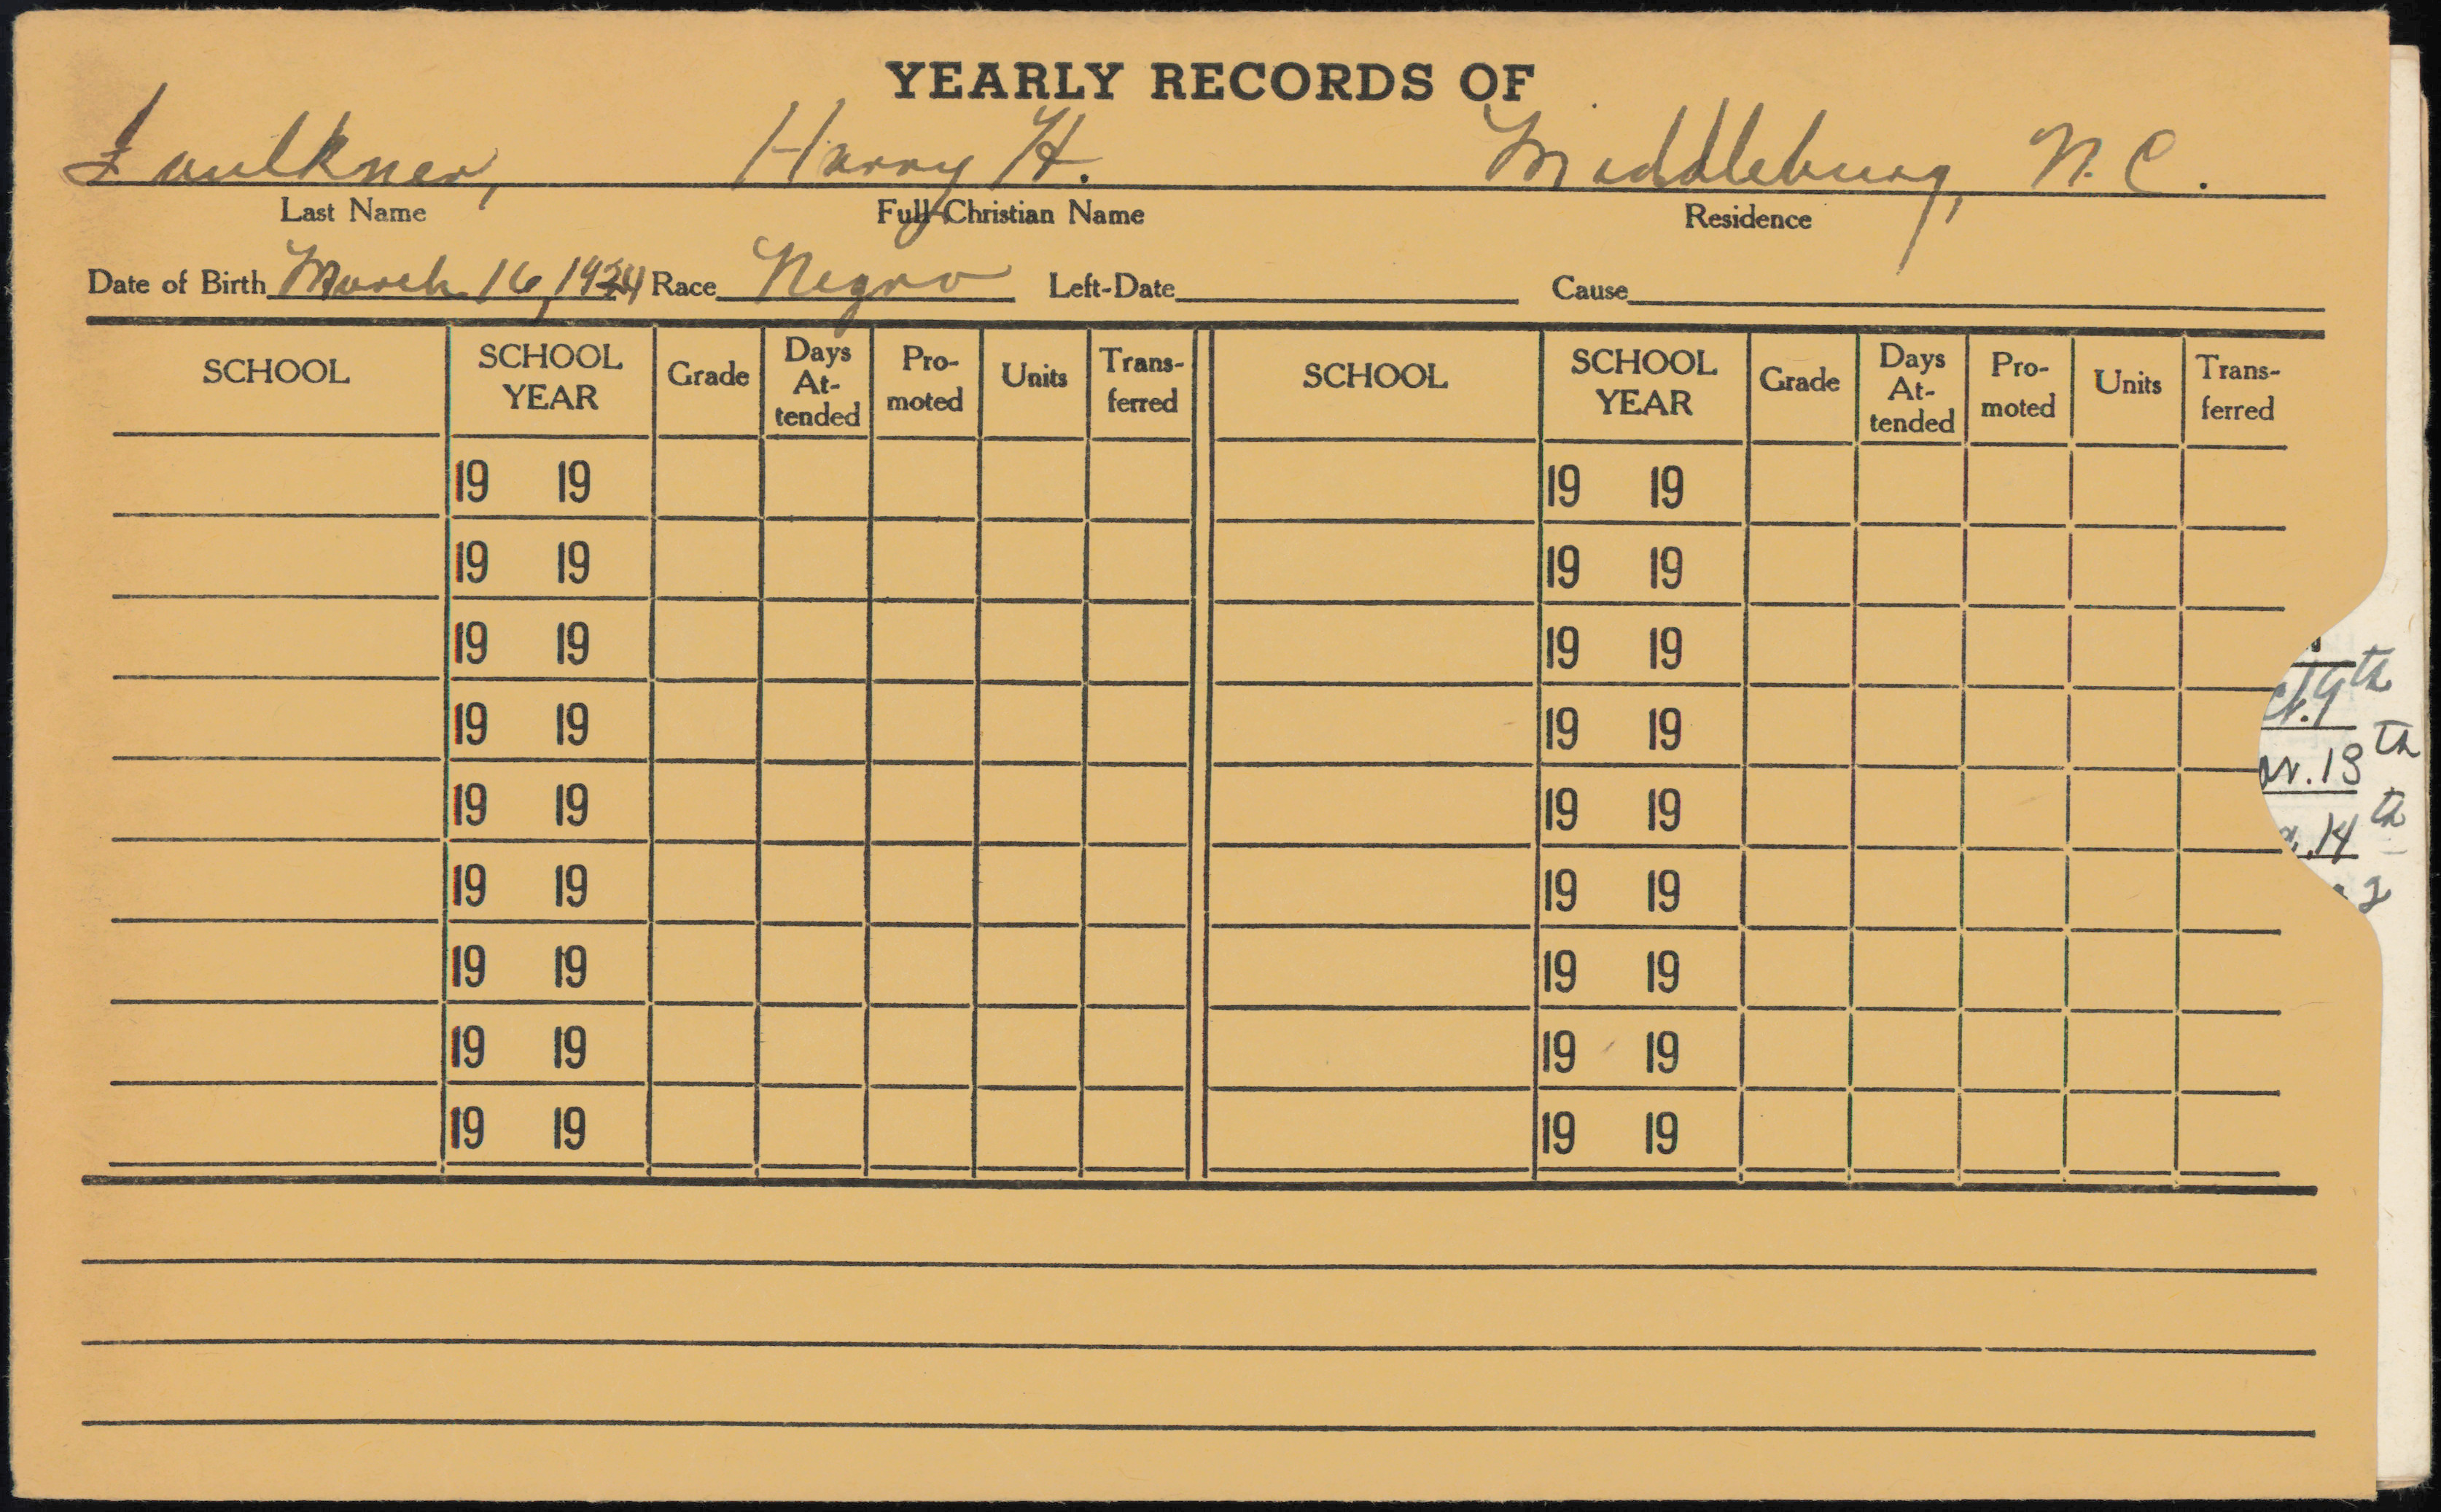 YEARLY RECORDS OF
Faulkner, Harry H. Middleburg, N.C.
Last Name Full Christian Name Residence
Date of Birth March 16, 1924 Race Negro Left-Date Cause
SCHOOL SCHOOL YEAR Grade Days At-tended Pro-moted Units Trans-ferred SCHOOL SCHOOL YEAR Grade Days At-tended Pro-moted Units Trans-ferred
19 19 19 19
19 19 19 19
19 19 19 19
19 19 19 19
19 19 19 19
19 19 19 19
19 19 19 19
19 19 19 19
19 19 19 19
9th
13th
14th
2